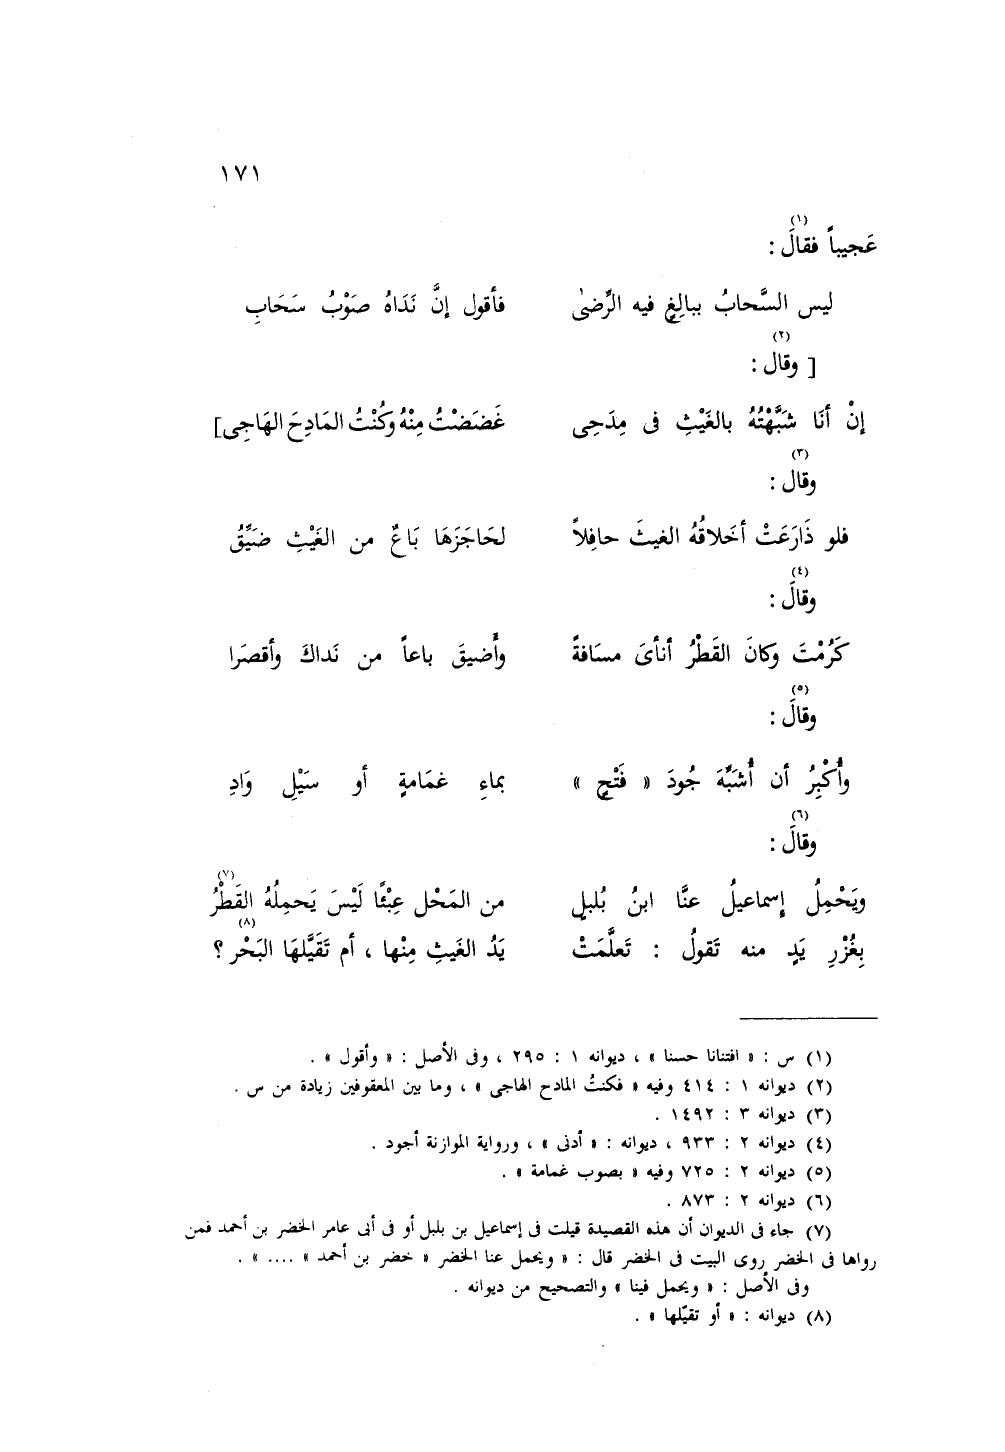 ١٧١
(١)
عَجيباً فقالَ :
ليس السَّحابُ ببالِغٍ فيه الرِّضىٰ فأقول إنَّ نَدَاهُ صَوْبُ سَحَابِ
(٢)
[ وقال :
إنْ أنَا شبَّهْتُهُ بالغَيْثِ فى مِدَحِى غَضَضْتُ مِنْهُ وكُنْتُ المَادِحَ الهَاجِى]
(٣)
وقال :
فلو ذَارَعَتْ أخَلاقُهُ الغيثَ حافِلاً لحَاجَزَهَا بَاعٌ من الغَيْثِ ضَيِّقُ
(٤)
وقالَ :
كَرُمْتَ وكانَ القَطْرُ أنأىَ مسَافةً وأَضيقَ باعاً من نَداكَ وأقصَرا
(٥)
وقالَ :
وأُكْبِرُ أن أُشَبِّهَ جُودَ « فَتْحٍ » بماءِ غمَامةٍ أو سَيْلِ وَادِ
(٦)
وقالَ :
ويَحْمِلُ إسماعيلُ عنَّا ابنُ بُلبلٍ من المَحْل عِبْئًا لَيْسَ يَحمِلُهُ القَطْرُ (٧)
بِغُزْرِ يَدٍ منه تَقولُ : تَعلَّمَتْ يَدُ الغَيثِ مِنْها ، أم تَقَيَّلهَا البَحْر ؟ (٨)
(١) س : « افتنانا حسنا » ، ديوانه ١ : ٢٩٥ ، وفى الأصل : « وأقول » .
(٢) ديوانه ١ : ٤١٤ وفيه « فكنتُ المادح الهاجى » ، وما بين المعقوفين زيادة من س .
(٣) ديوانه ٣ : ١٤٩٢ .
(٤) ديوانه ٢ : ٩٣٣ ، ديوانه : « أدنى » ، ورواية الموازنة أجود .
(٥) ديوانه ٢ : ٧٢٥ وفيه « بصوب غمامة » .
(٦) ديوانه ٢ : ٨٧٣ .
(٧) جاء فى الديوان أن هذه القصيدة قيلت فى إسماعيل بن بلبل أو فى أبى عامر الخضر بن أحمد فمن
رواها فى الخضر روى البيت فى الخضر قال : « ويحمل عنا الخضر « خضر بن أحمد » .... » .
وفى الأصل : « ويحمل فينا » والتصحيح من ديوانه .
(٨) ديوانه : « أو تقيّلها » .